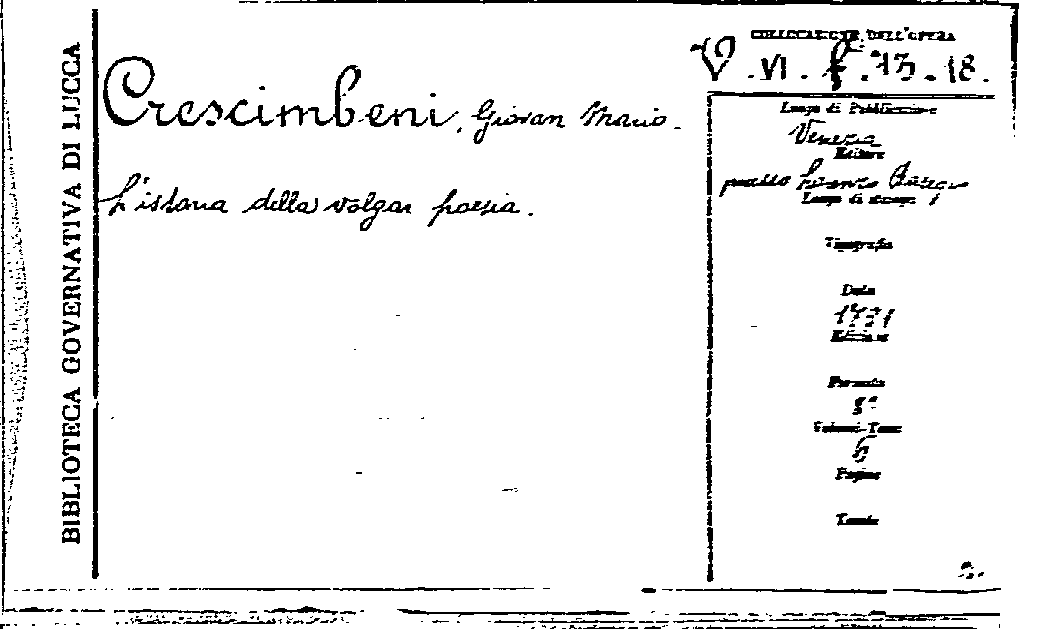 BIBLIOTECA GOVERNATIVA DI LUCCA
Crescimbeni, Giovan Mario.
L'istoria della volgar poesia.
COLLOCAZIONE DELL'OPERA
V. VI. f. 13-18.
Luogo di Pubblicazione
Venezia
Editore
presso Lorenzo
Luogo di stampa
Tipografia
Data
1731
Edizione
Formato
8°
Volumi-Tomi
6
Pagine
Tavole